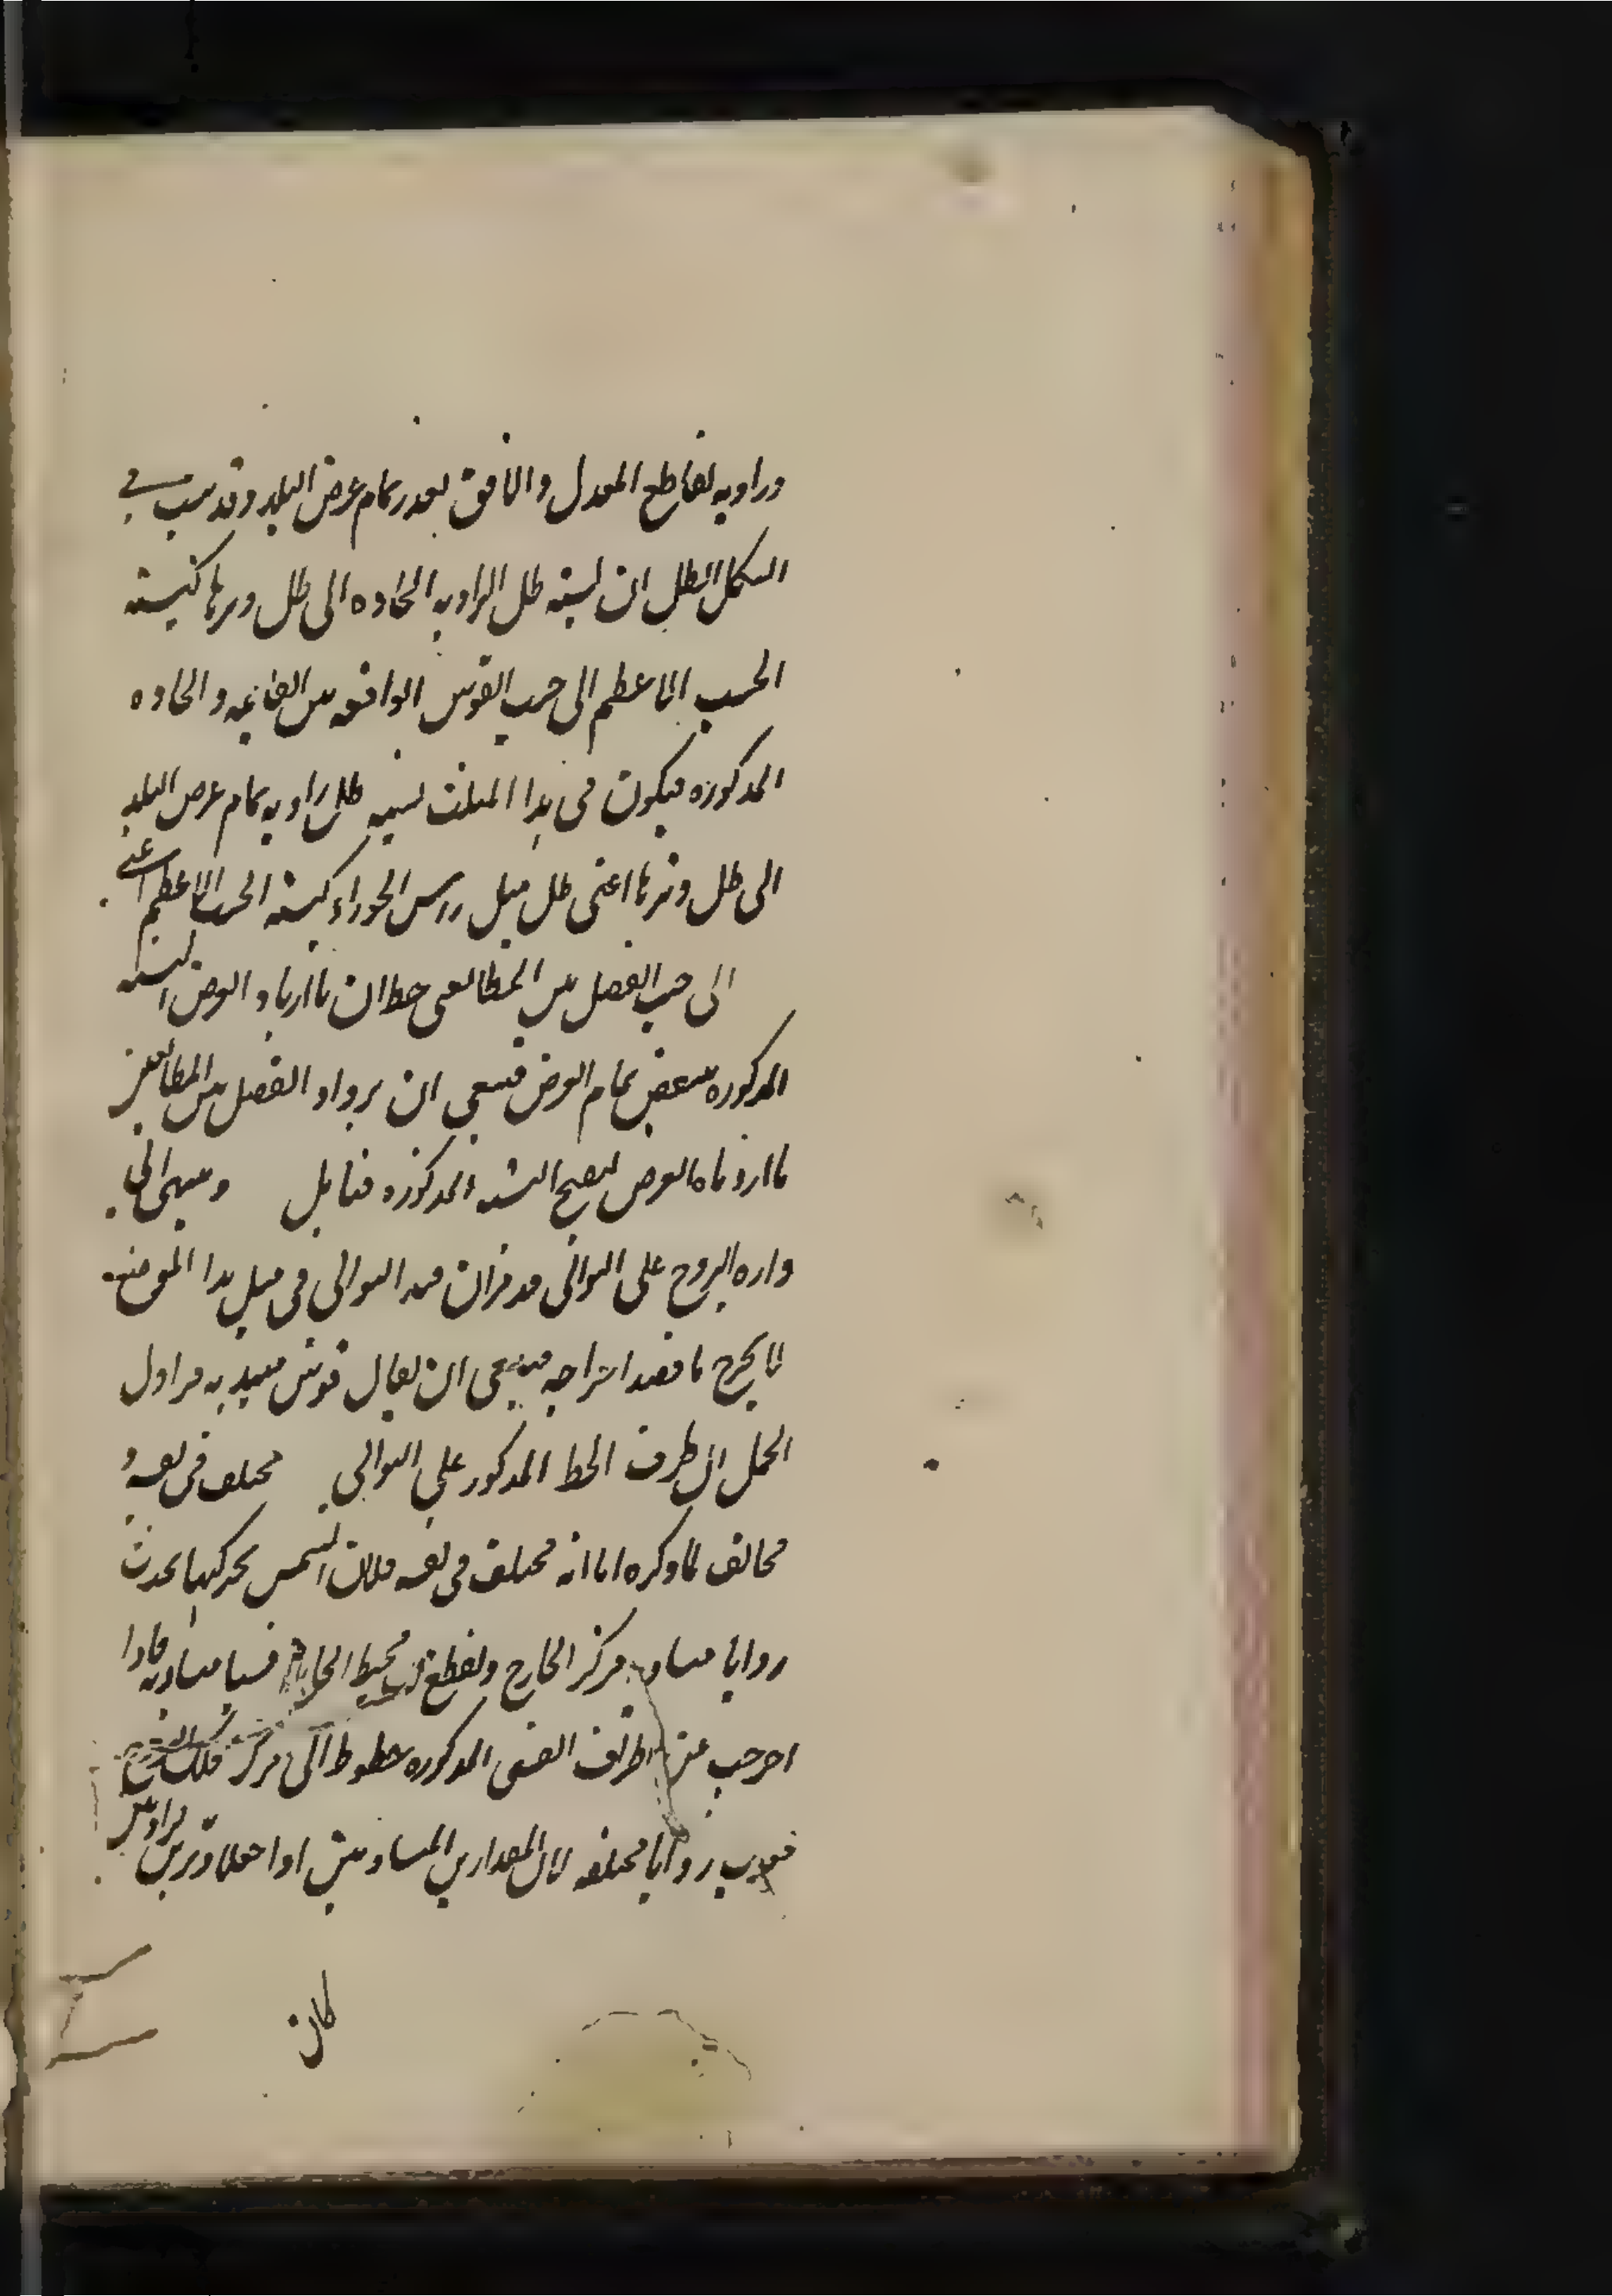 وزاویه تقاطع المعدل والافق بقدر تمام عرض البلد وقد ثبت فی
الشکل الظلی ان نسبة ظل الزاویه الحاده الی ظل وترها کنسبة
الجیب الاعظم الی جیب القوس الواقعه بین القائمه والحاده
المذکوره فیکون فی هذا المثلث نسبه ظل زاویه تمام عرض البلد
الی ظل وترها اعنی ظل میل راس الجوزاء کنسبة الجیب الاعظم اعنی
الی جیب الفضل بین المطالعین فظ ان باازیاد العرض النسبه
المذکوره ینتقض تمام العرض فینبغی ان یزداد الفضل بین المطالعین
باازدیاد العرض لیصح النسبه المذکوره فتامل وینتهی الی
دایره البروج علی التوالی قد مر ان قید التوالی فی مثل هذا الموضع
لا یخرج ما قصد اخراجه فینبغی ان یقال قوس مبتدیه من اول
الحمل الی طرف الخط المذکور علی التوالی مختلف فی نفسه و
مخالف لما ذکره اما انه مختلف فی نفسه فلان الشمس بحرکتها تحدث
زوایا متساویه مرکز الخارج وتقطع من محیط الخارج قسیا متساویه فاذا
اخرجت من اطراف القسی المذکوره خطوط الی مرکز فلک البروج
حدثت زوایا مختلفه لان المقدارین المتساویین اذا جعلا وترین لزاویتین
کان